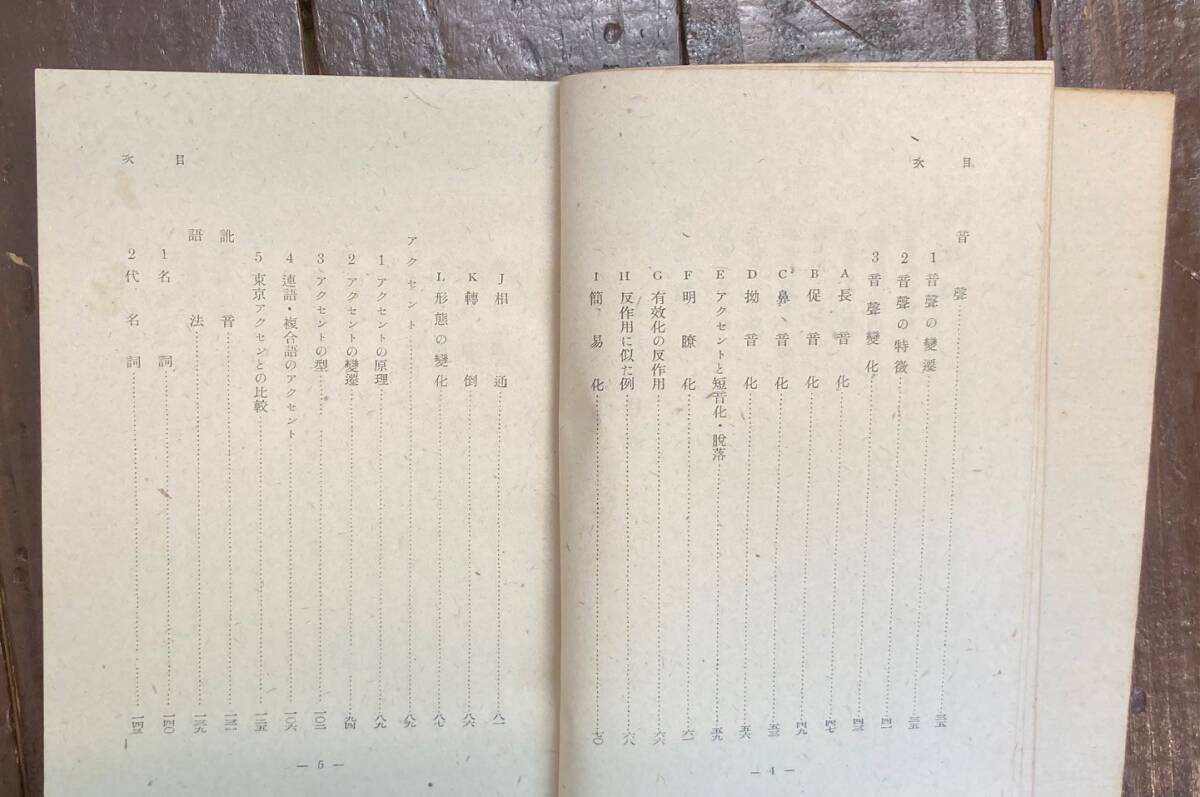 目次
音聲……三五
1 音聲の變遷……三五
2 音聲の特徴……四一
3 音聲變化……四三
A 長音化……四七
B 促音化……四九
C 鼻音化……五三
D 拗音化……五六
E アクセントと短音化・脫落……五九
F 明瞭化……六一
G 有效化の反作用……六六
H 反作用に似た例……六八
I 簡易化……七〇
— 4 —
目次
J 相通……八一
K 轉倒……八六
L 形態の變化……八七
アクセント……八九
1 アクセントの原理……八九
2 アクセントの變遷……九四
3 アクセントの型……一〇二
4 連語・複合語のアクセント……一〇六
5 東京アクセントとの比較……一二五
訛音……一三一
語法……一三九
1 名詞……一四〇
2 代名詞……一四三
— 5 —